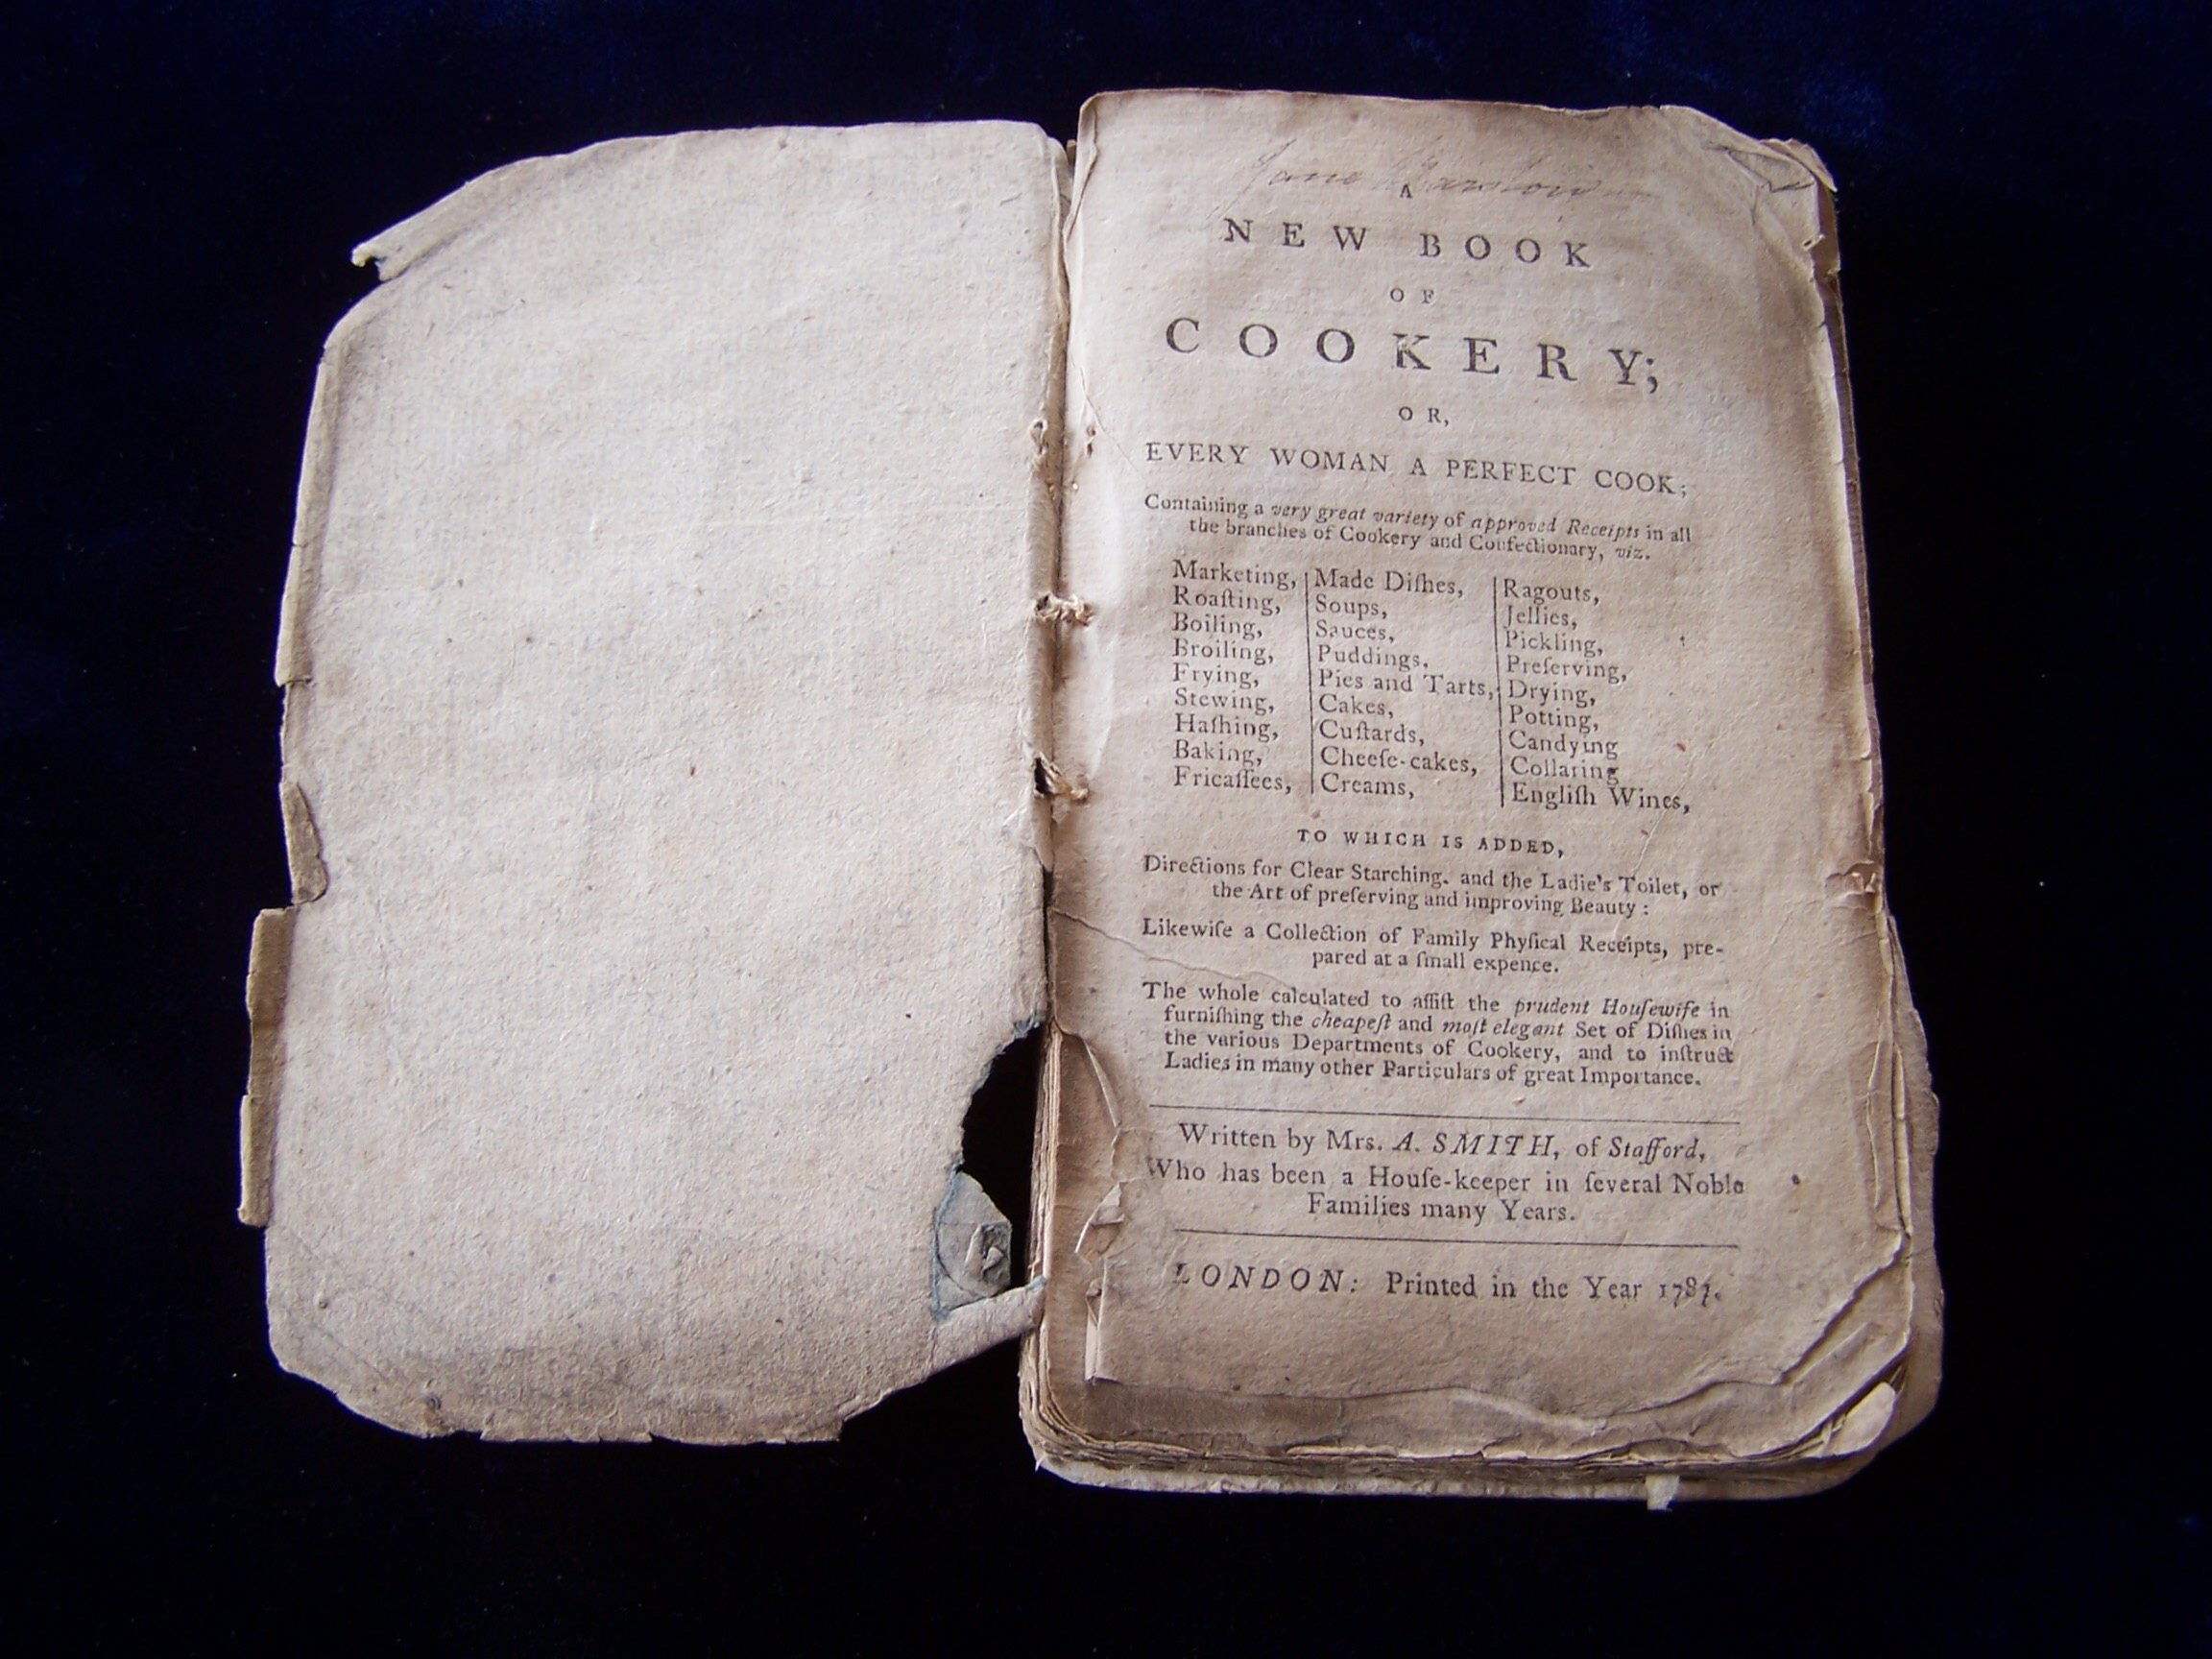 Jane
A
NEW BOOK
OF
COOKERY;
OR,
EVERY WOMAN A PERFECT COOK;
Containing a very great variety of approved Receipts in all
the branches of Cookery and Confectionary, viz.
Marketing, Made Diſhes, Ragouts,
Roaſting, Soups, Jellies,
Boiling, Sauces, Pickling,
Broiling, Puddings, Preſerving,
Frying, Pies and Tarts, Drying,
Stewing, Cakes, Potting,
Haſhing, Cuſtards, Candying
Baking, Cheeſe-cakes, Collaring
Fricaſſees, Creams, Engliſh Wines,
TO WHICH IS ADDED,
Directions for Clear Starching. and the Ladie's Toilet, or
the Art of preſerving and improving Beauty :
Likewiſe a Collection of Family Phyſical Receipts, pre-
pared at a ſmall expence.
The whole calculated to aſſiſt the prudent Houſewife in
furniſhing the cheapeſt and moſt elegant Set of Diſhes in
the various Departments of Cookery, and to inſtruct
Ladies in many other Particulars of great Importance.
Written by Mrs. A. SMITH, of Stafford,
Who has been a Houſe-keeper in ſeveral Noble
Families many Years.
LONDON: Printed in the Year 1781.